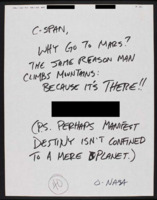 C-SPAN,
WHY GO TO MARS?
THE SAME REASON MAN
CLIMBS MOUNTAINS:
BECAUSE IT'S THERE!!
(P.S. PERHAPS MANIFEST
DESTINY ISN'T CONFINED
TO A MERE PLANET.)
NASA